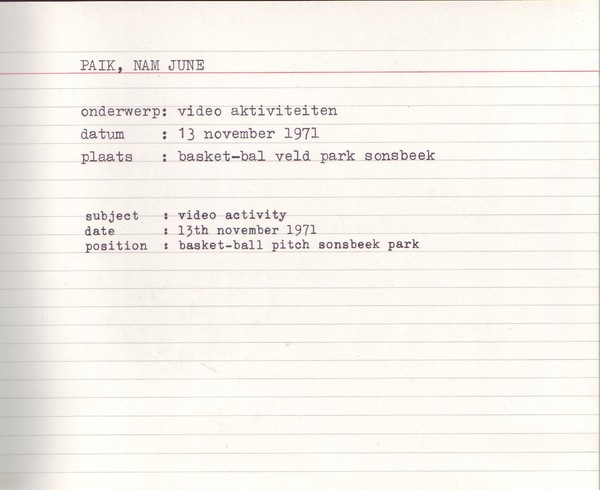 PAIK, NAM JUNE
onderwerp: video aktiviteiten
datum : 13 november 1971
plaats : basket-bal veld park sonsbeek
subject : video activity
date : 13th november 1971
position : basket-ball pitch sonsbeek park